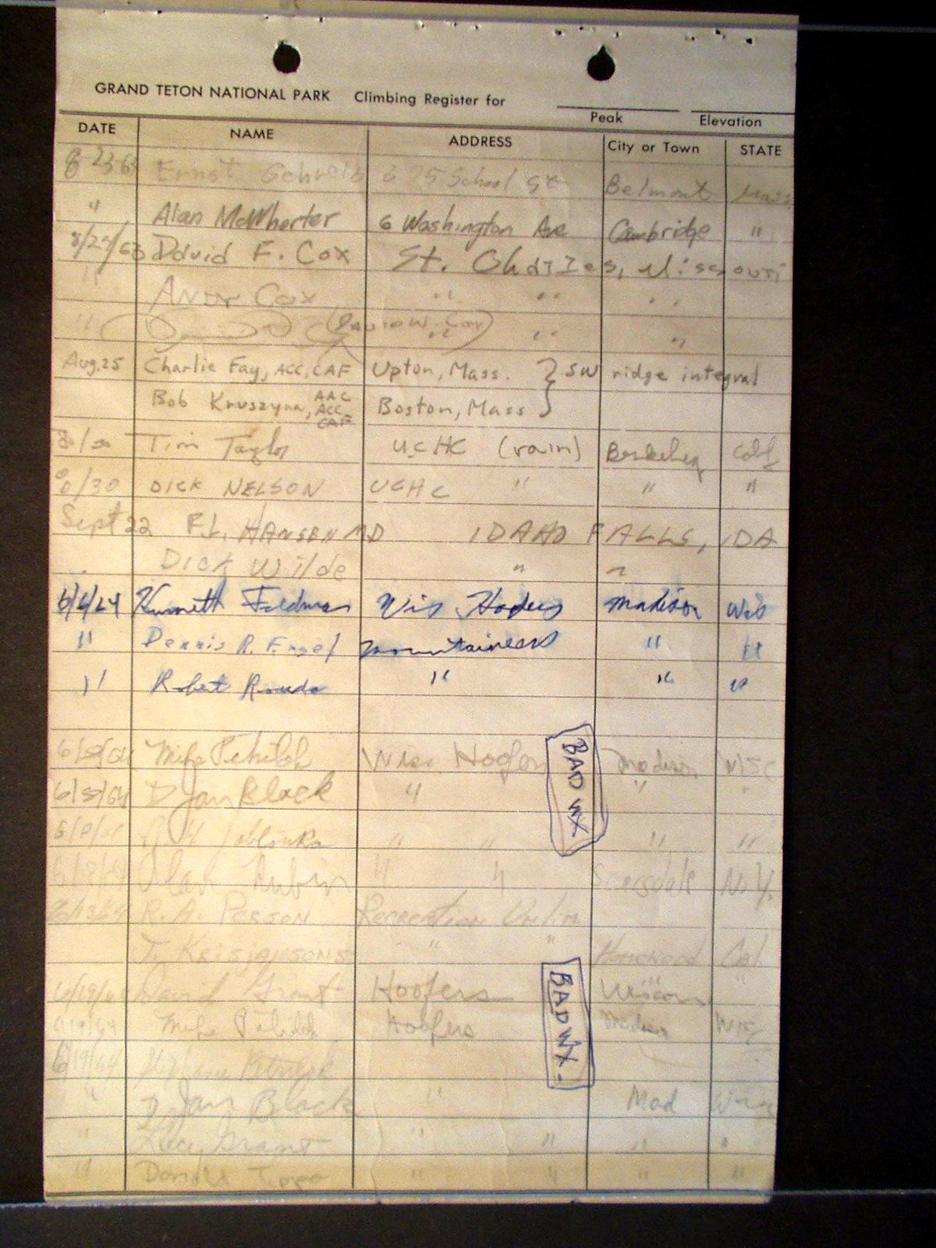 GRAND TETON NATIONAL PARK Climbing Register for
Peak Elevation
DATE NAME ADDRESS City or Town STATE
8-23-63 Ernst 675 School St Belmont Mass
" Alan McWhorter 6 Washington Ave Cambridge "
8/25/63 David F. Cox St. Charles, Missouri
" Andy Cox " " " "
" (David W. Cox) " " "
Aug. 25 Charlie Fay, ACC, CAF Upton, Mass. } SW ridge integral
Bob Kruszyna, AAC ACC CAF Boston, Mass
8/30 Tim Taylor UCHC (rain) Berkeley Calif
8/30 DICK NELSON UCHC " " "
Sept 22 F.L. HANSEN MD IDAHO FALLS, IDA
Dick Wilde " "
6/6/64 Kenneth Feldman Wis Hoofers Madison Wis
" Dennis R. mountaineers " "
" Robert " " "
Wisc Hoofers BAD WX Madison WISC
6/8/64 D Jan Black " " "
" " " "
Alan Rubin " " Scarsdale N.Y.
6/13/64 R. A. PERSON Recreation Unlim
T. KRISJANSONS " " Cal.
6/19/64 David Grant Hoofers
6/19/64 Mike Hoofers BAD WX. Madison Wisc
6/19/64
" D Jan Black " Mad
" Lucy Grant " " " "
" Donald " " " "